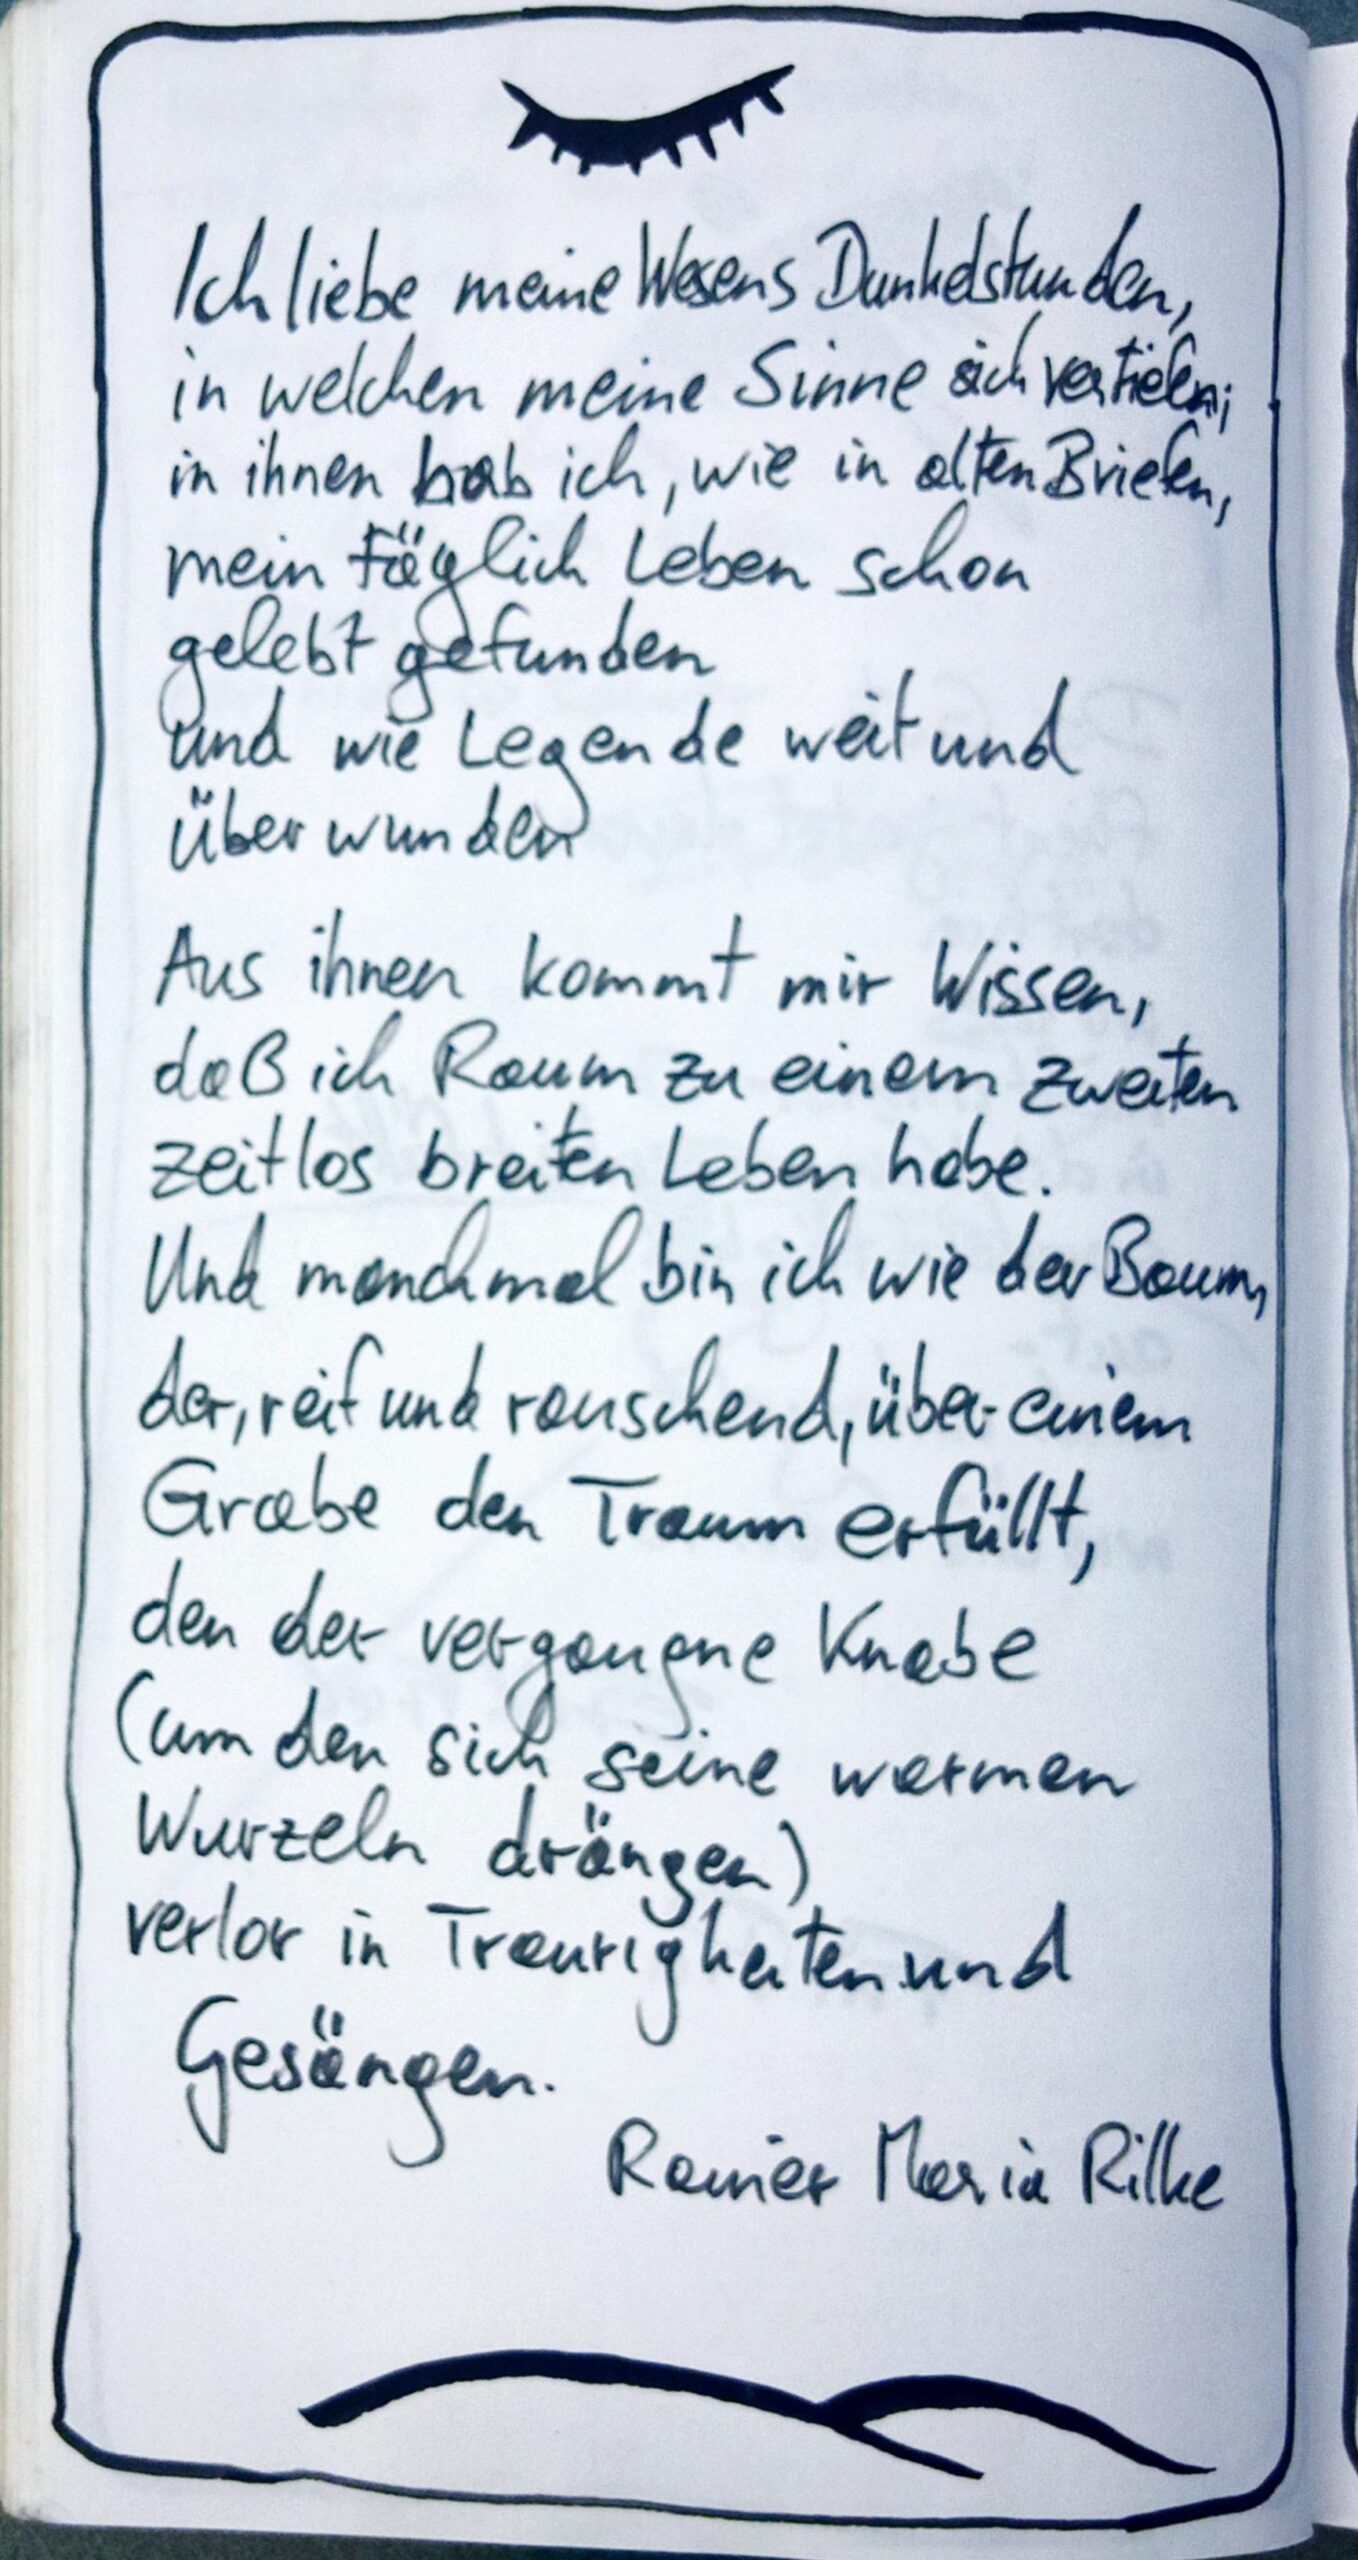 Ich liebe meine Wesens Dunkelstunden,
in welchen meine Sinne sich vertiefen;
in ihnen hab ich, wie in alten Briefen,
mein täglich Leben schon
gelebt gefunden
und wie Legende weit und
überwunden
Aus ihnen kommt mir Wissen,
daß ich Raum zu einem zweiten
zeitlos breiten Leben habe.
Und manchmal bin ich wie der Baum,
der, reif und rauschend, über einem
Grabe den Traum erfüllt,
den der vergangne Knabe
(um den sich seine warmen
Wurzeln drängen)
verlor in Traurigkeiten und
Gesängen.
Rainer Maria Rilke